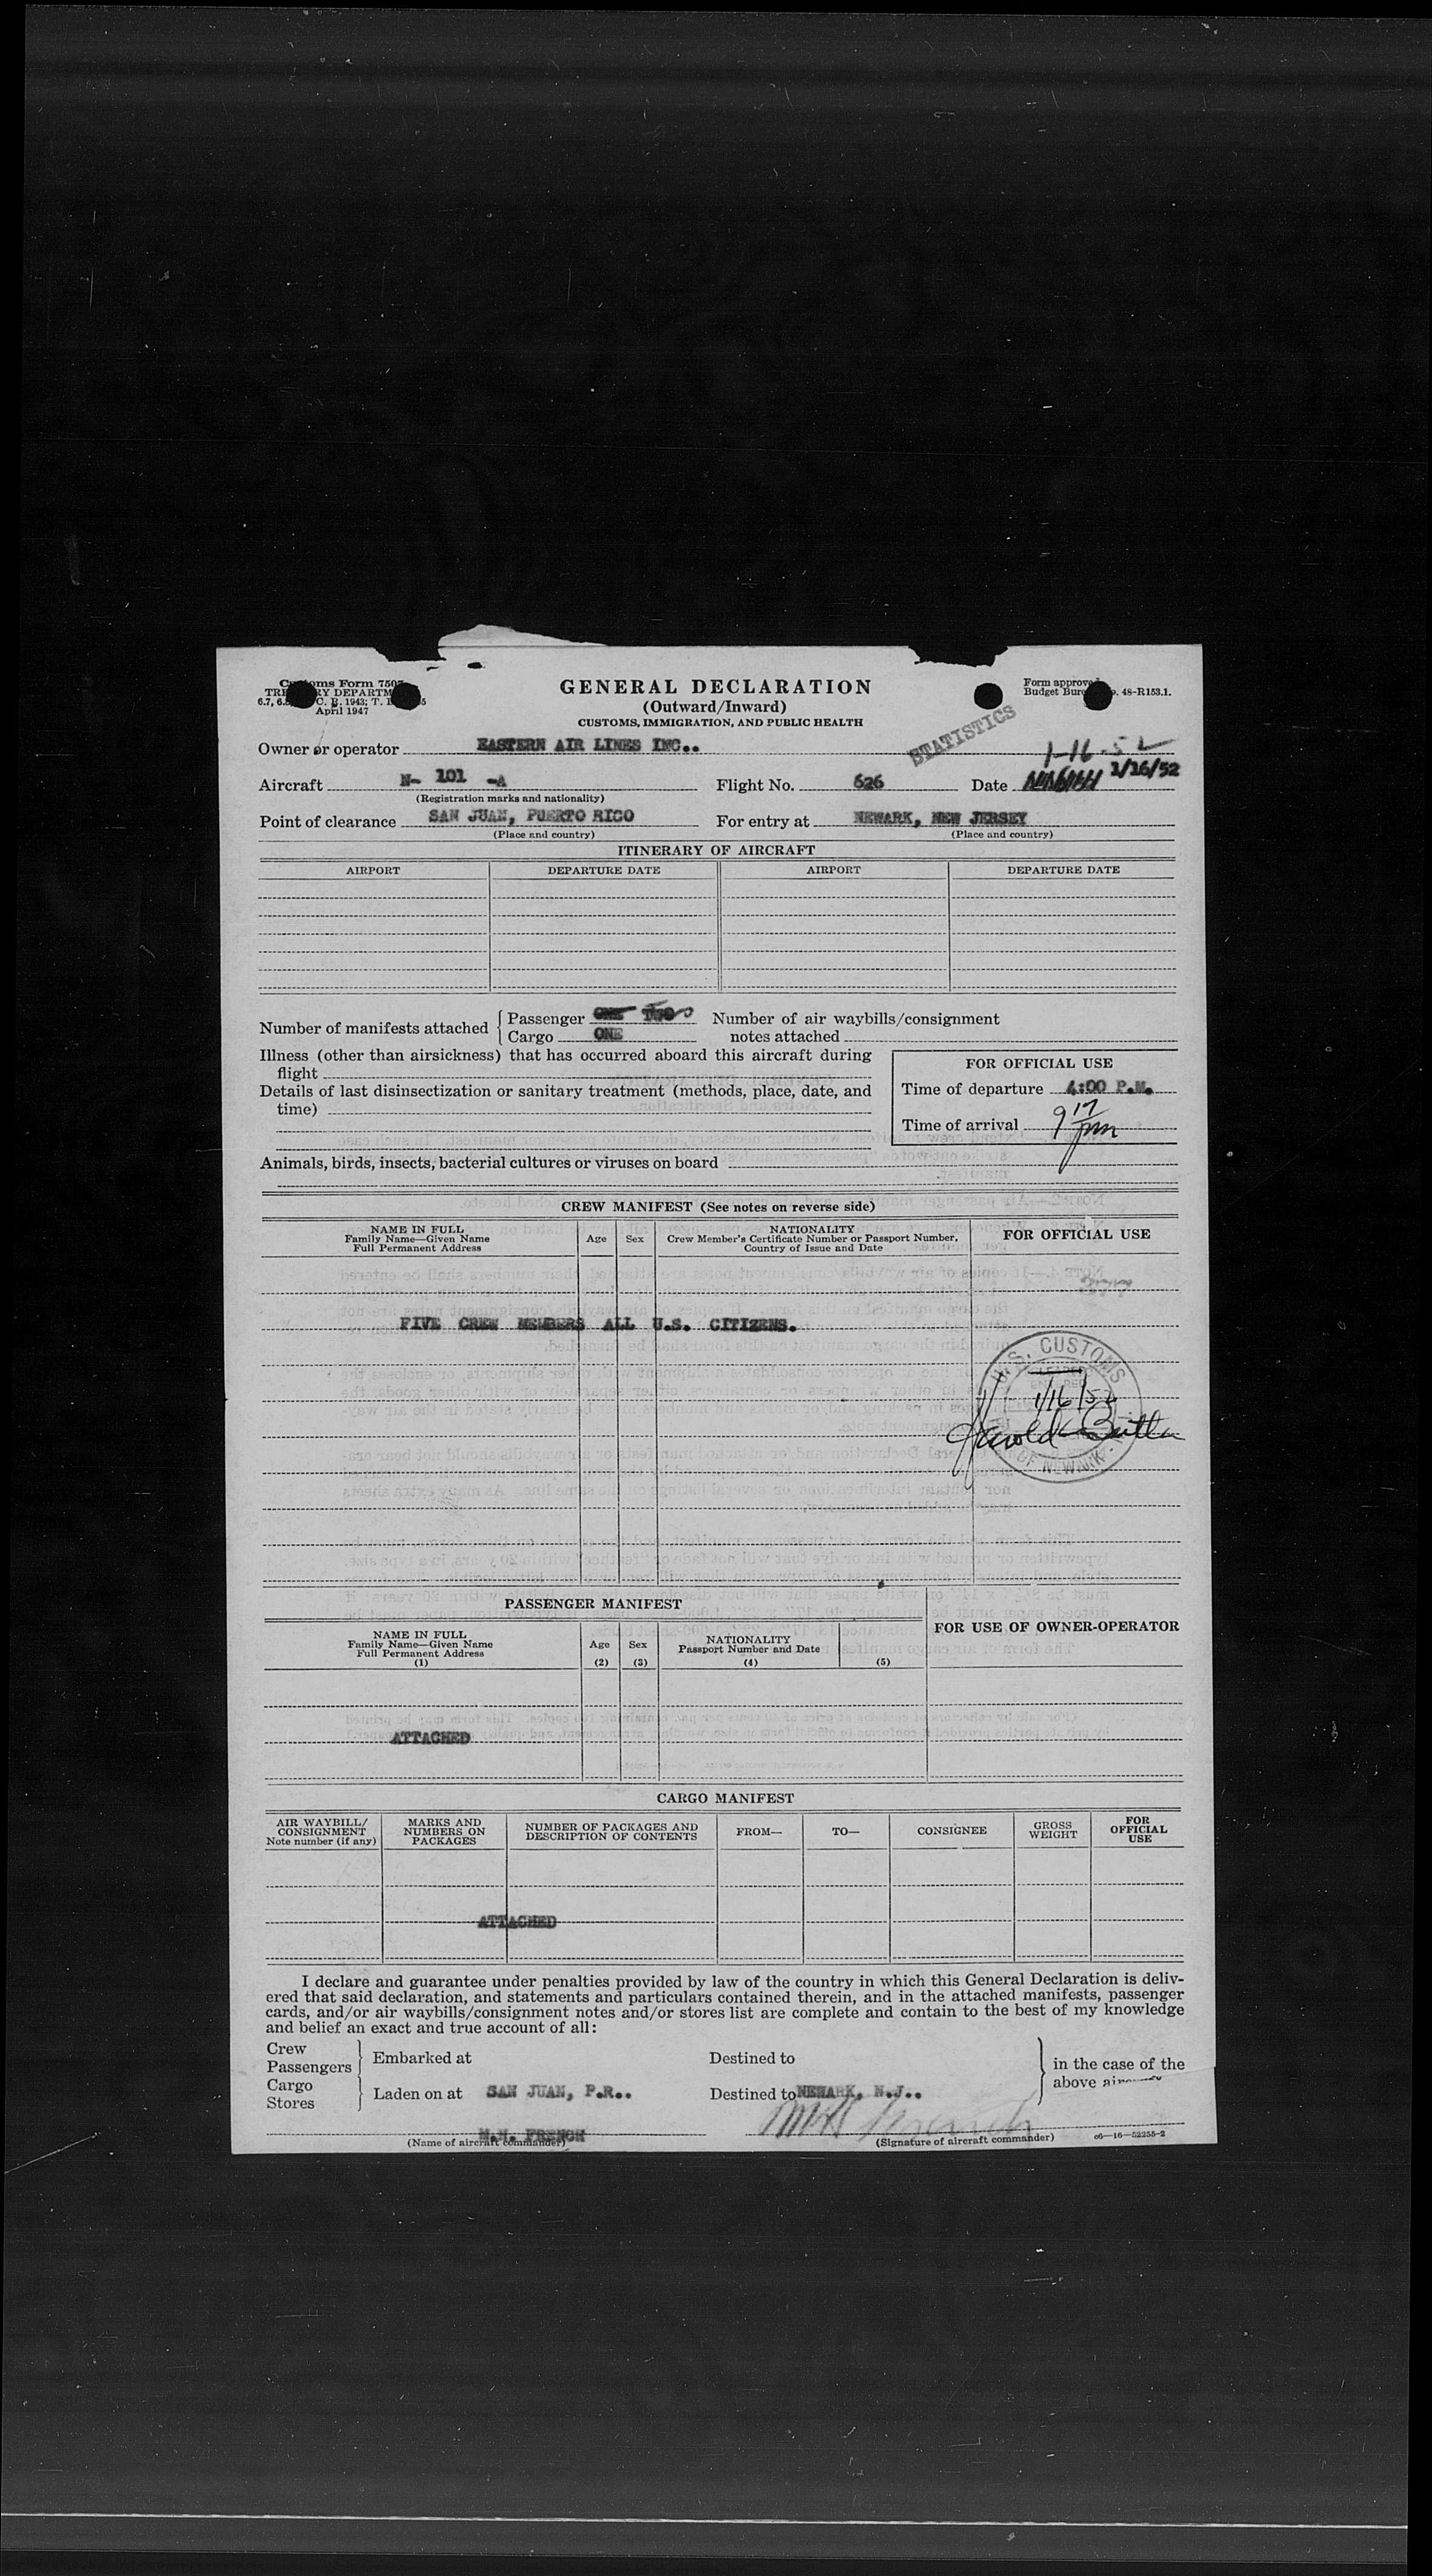 Customs Form 7507
TREASURY DEPARTMENT
C. R. 1943; T. D.
April 1947
GENERAL DECLARATION
(Outward/Inward)
CUSTOMS, IMMIGRATION, AND PUBLIC HEALTH
Form approved.
Budget Bureau No. 48-R153.1.
STATISTICS
1-16-52
Owner or operator EASTERN AIR LINES INC..
Aircraft N- 101 -A Flight No. 626 Date 1/16/52
(Registration marks and nationality)
Point of clearance SAN JUAN, PUERTO RICO For entry at NEWARK, NEW JERSEY
(Place and country) (Place and country)
ITINERARY OF AIRCRAFT
AIRPORT DEPARTURE DATE AIRPORT DEPARTURE DATE
Number of manifests attached { Passenger ONE TWO Number of air waybills/consignment
Cargo ONE notes attached
Illness (other than airsickness) that has occurred aboard this aircraft during
flight
Details of last disinsectization or sanitary treatment (methods, place, date, and
time)
FOR OFFICIAL USE
Time of departure 4:00 P.M.
Time of arrival 9 17 pm
Animals, birds, insects, bacterial cultures or viruses on board
CREW MANIFEST (See notes on reverse side)
NAME IN FULL
Family Name—Given Name
Full Permanent Address
Age Sex
NATIONALITY
Crew Member's Certificate Number or Passport Number,
Country of Issue and Date
FOR OFFICIAL USE
FIVE CREW MEMBERS ALL U.S. CITIZENS.
U.S. CUSTOMS
1/16/52
Harold Butler
OF NEWARK
PASSENGER MANIFEST
NAME IN FULL
Family Name—Given Name
Full Permanent Address
(1)
Age
(2)
Sex
(3)
NATIONALITY
Passport Number and Date
(4) (5)
FOR USE OF OWNER-OPERATOR
ATTACHED
CARGO MANIFEST
AIR WAYBILL/
CONSIGNMENT
Note number (if any)
MARKS AND
NUMBERS ON
PACKAGES
NUMBER OF PACKAGES AND
DESCRIPTION OF CONTENTS
FROM— TO— CONSIGNEE
GROSS
WEIGHT
FOR
OFFICIAL
USE
ATTACHED
I declare and guarantee under penalties provided by law of the country in which this General Declaration is deliv-
ered that said declaration, and statements and particulars contained therein, and in the attached manifests, passenger
cards, and/or air waybills/consignment notes and/or stores list are complete and contain to the best of my knowledge
and belief an exact and true account of all:
Crew
Passengers } Embarked at Destined to
Cargo
Stores } Laden on at SAN JUAN, P.R.. Destined to NEWARK, N.J..
} in the case of the
above aircraft
M.H. FRENCH
(Name of aircraft commander) (Signature of aircraft commander) c6—16—52255-2